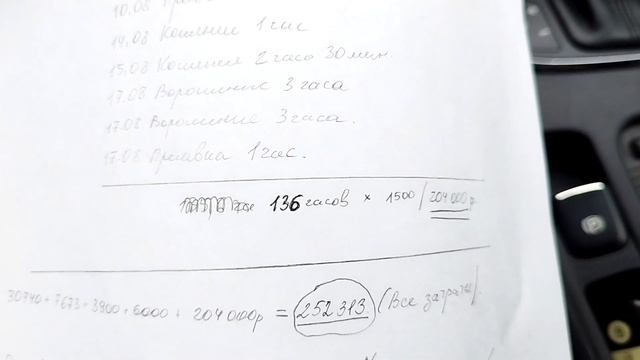 14.08 Кошение 1 час
15.08 Кошения 2 часа 30 мин.
17.08 Ворошение 3 часа
17.08 Ворошение 3 часа.
17.08 1 час.
136 часов × 1500 / 204 000 р
30740 + 7673 + 3900 + 6000 + 204 000р = 252 313. (Все затраты).